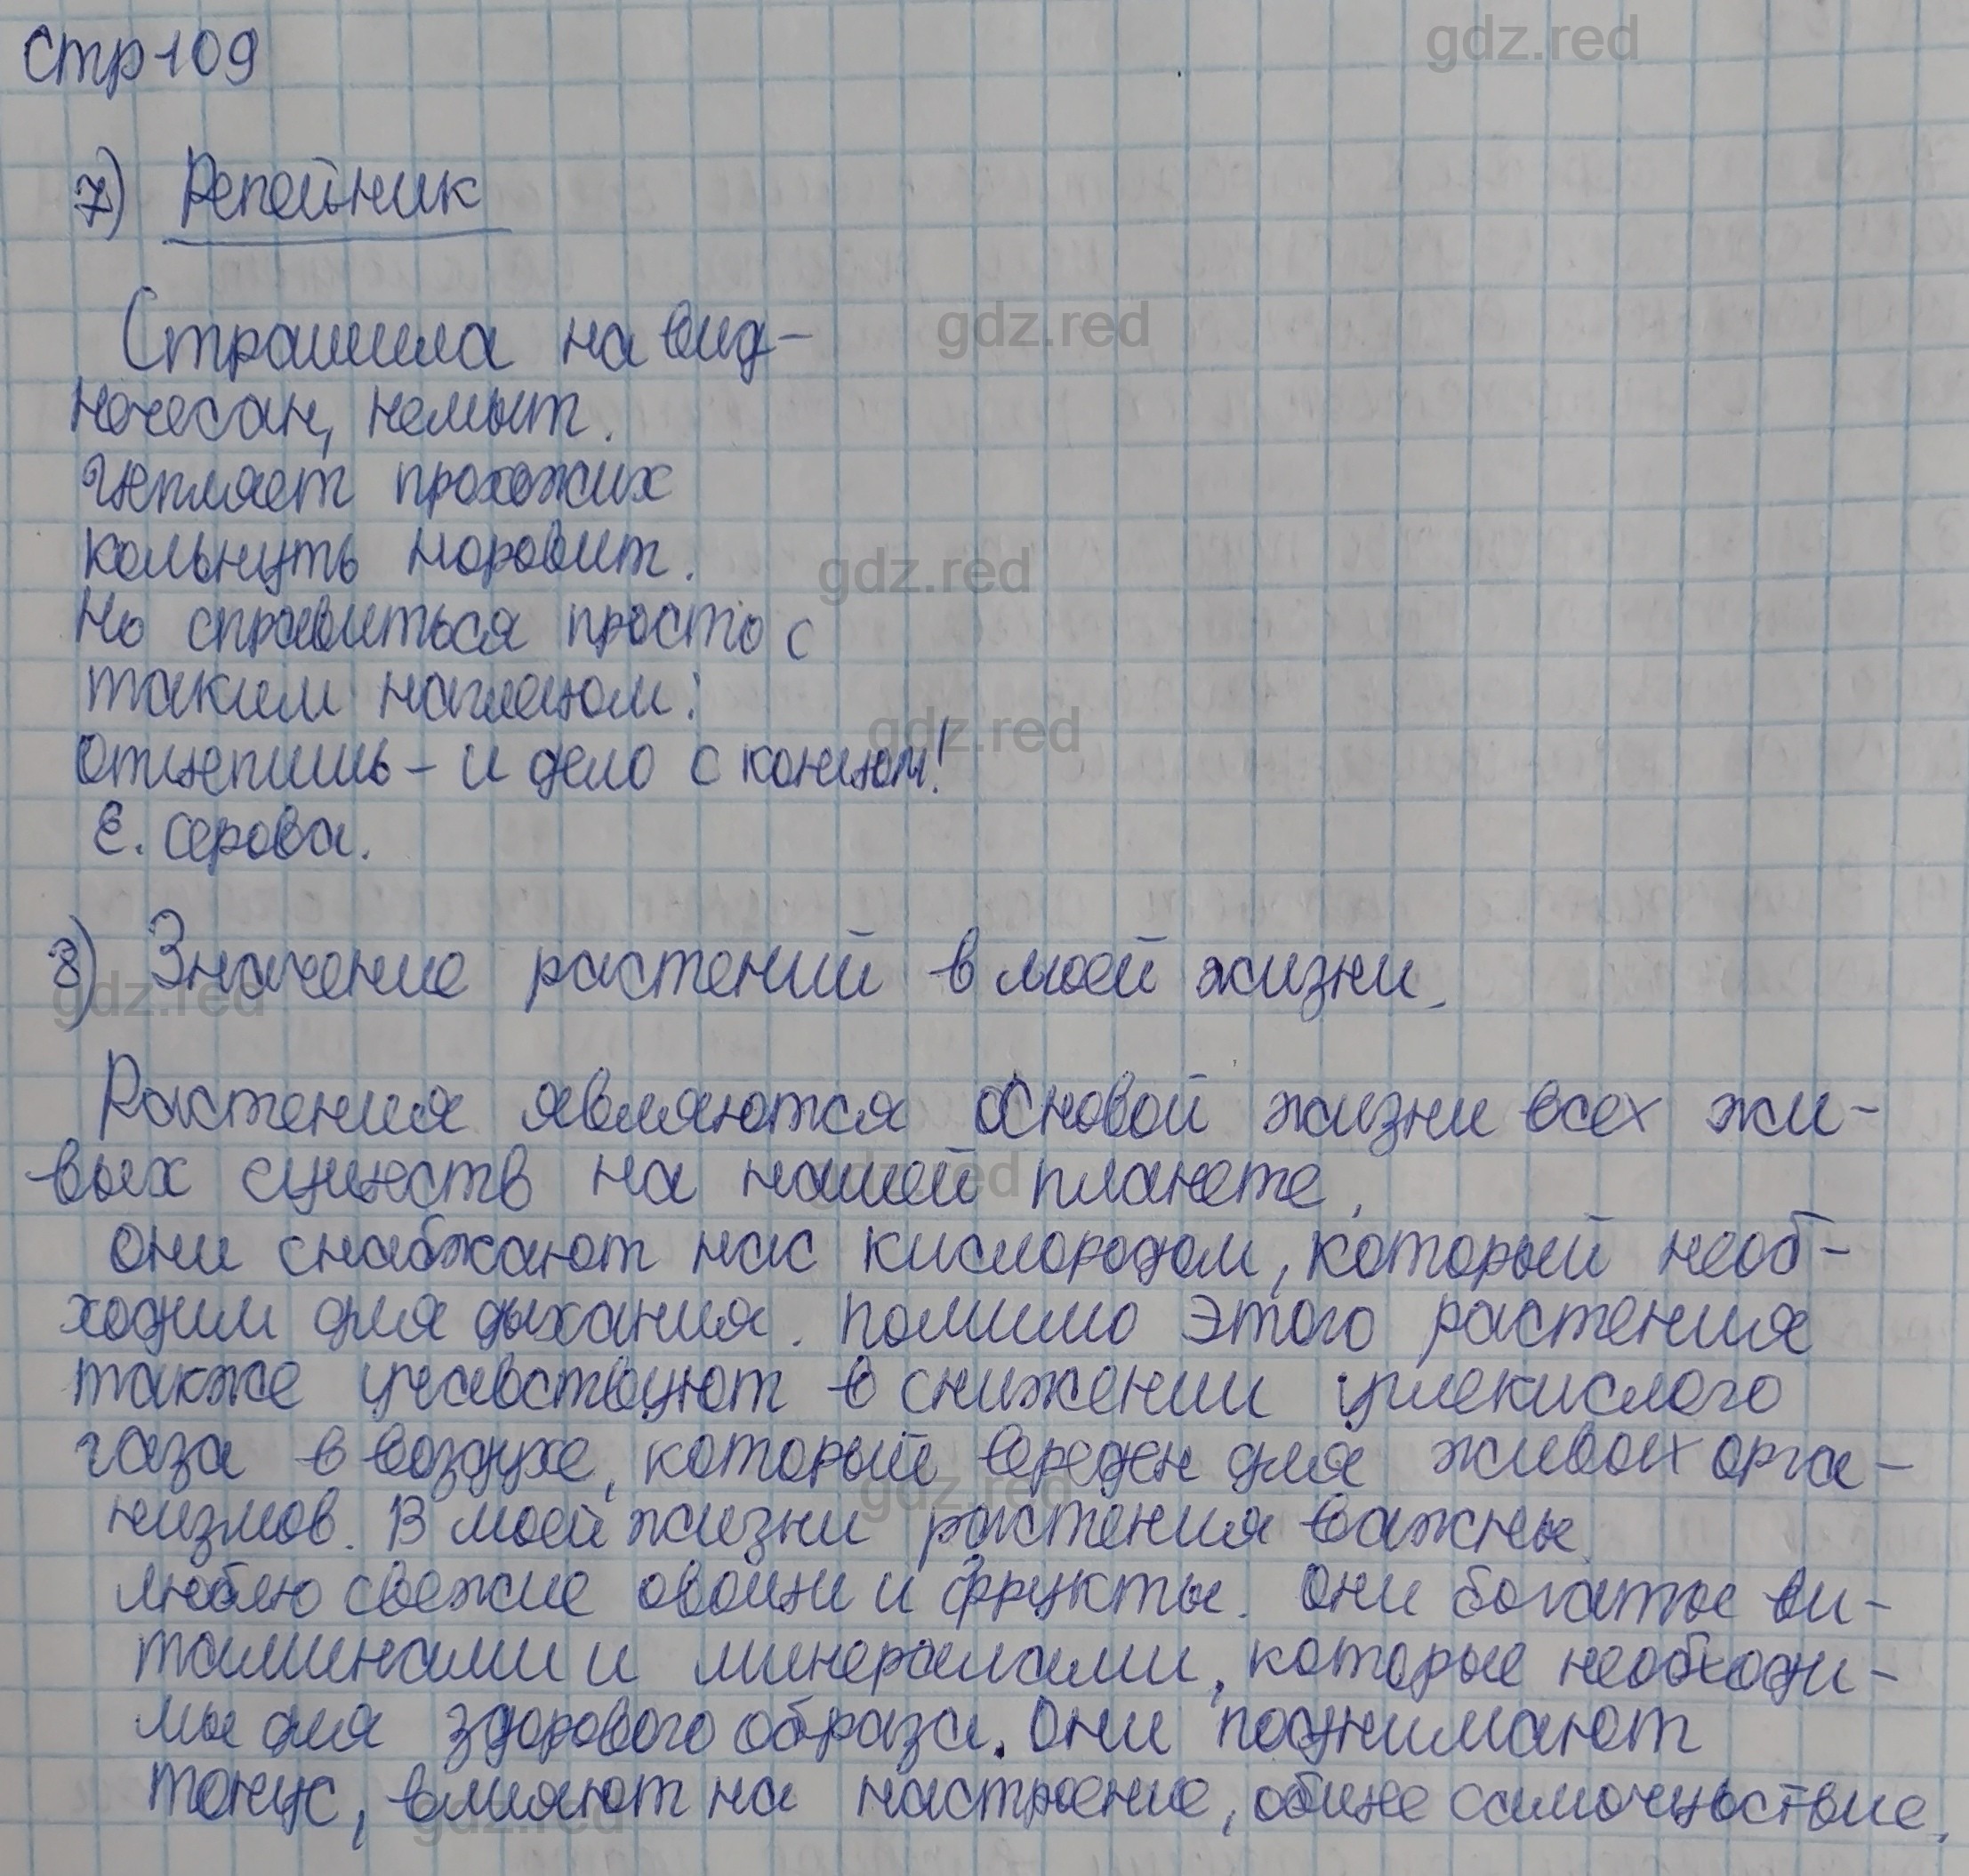 Стр 109
gdz.red
7) Репейник
Страшила на вид-
gdz.red
нечесан, немыт.
Цепляет прохожих
кольнуть норовит.
gdz.red
Но справиться просто с
таким наглецом:
gdz.red
отцепишь - и дело с концом!
Е. Серова.
8) Значение растений в моей жизни.
gdz.red
Растения являются основой жизни всех жи-
вых существ на нашей планете.
gdz.red
они снабжают нас кислородом, который необ-
ходим для дыхания. помимо этого растения
также учавствуют в снижении углекислого
газа в воздухе, который вреден для живых орга-
gdz.red
низмов. В моей жизни растения важны.
люблю свежие овощи и фрукты. они богаты ви-
таминами и минералами, которые необходи-
мы для здорового образа. они поднимают
тонус, влияют на настроение, общее самочувствие.
gdz.red